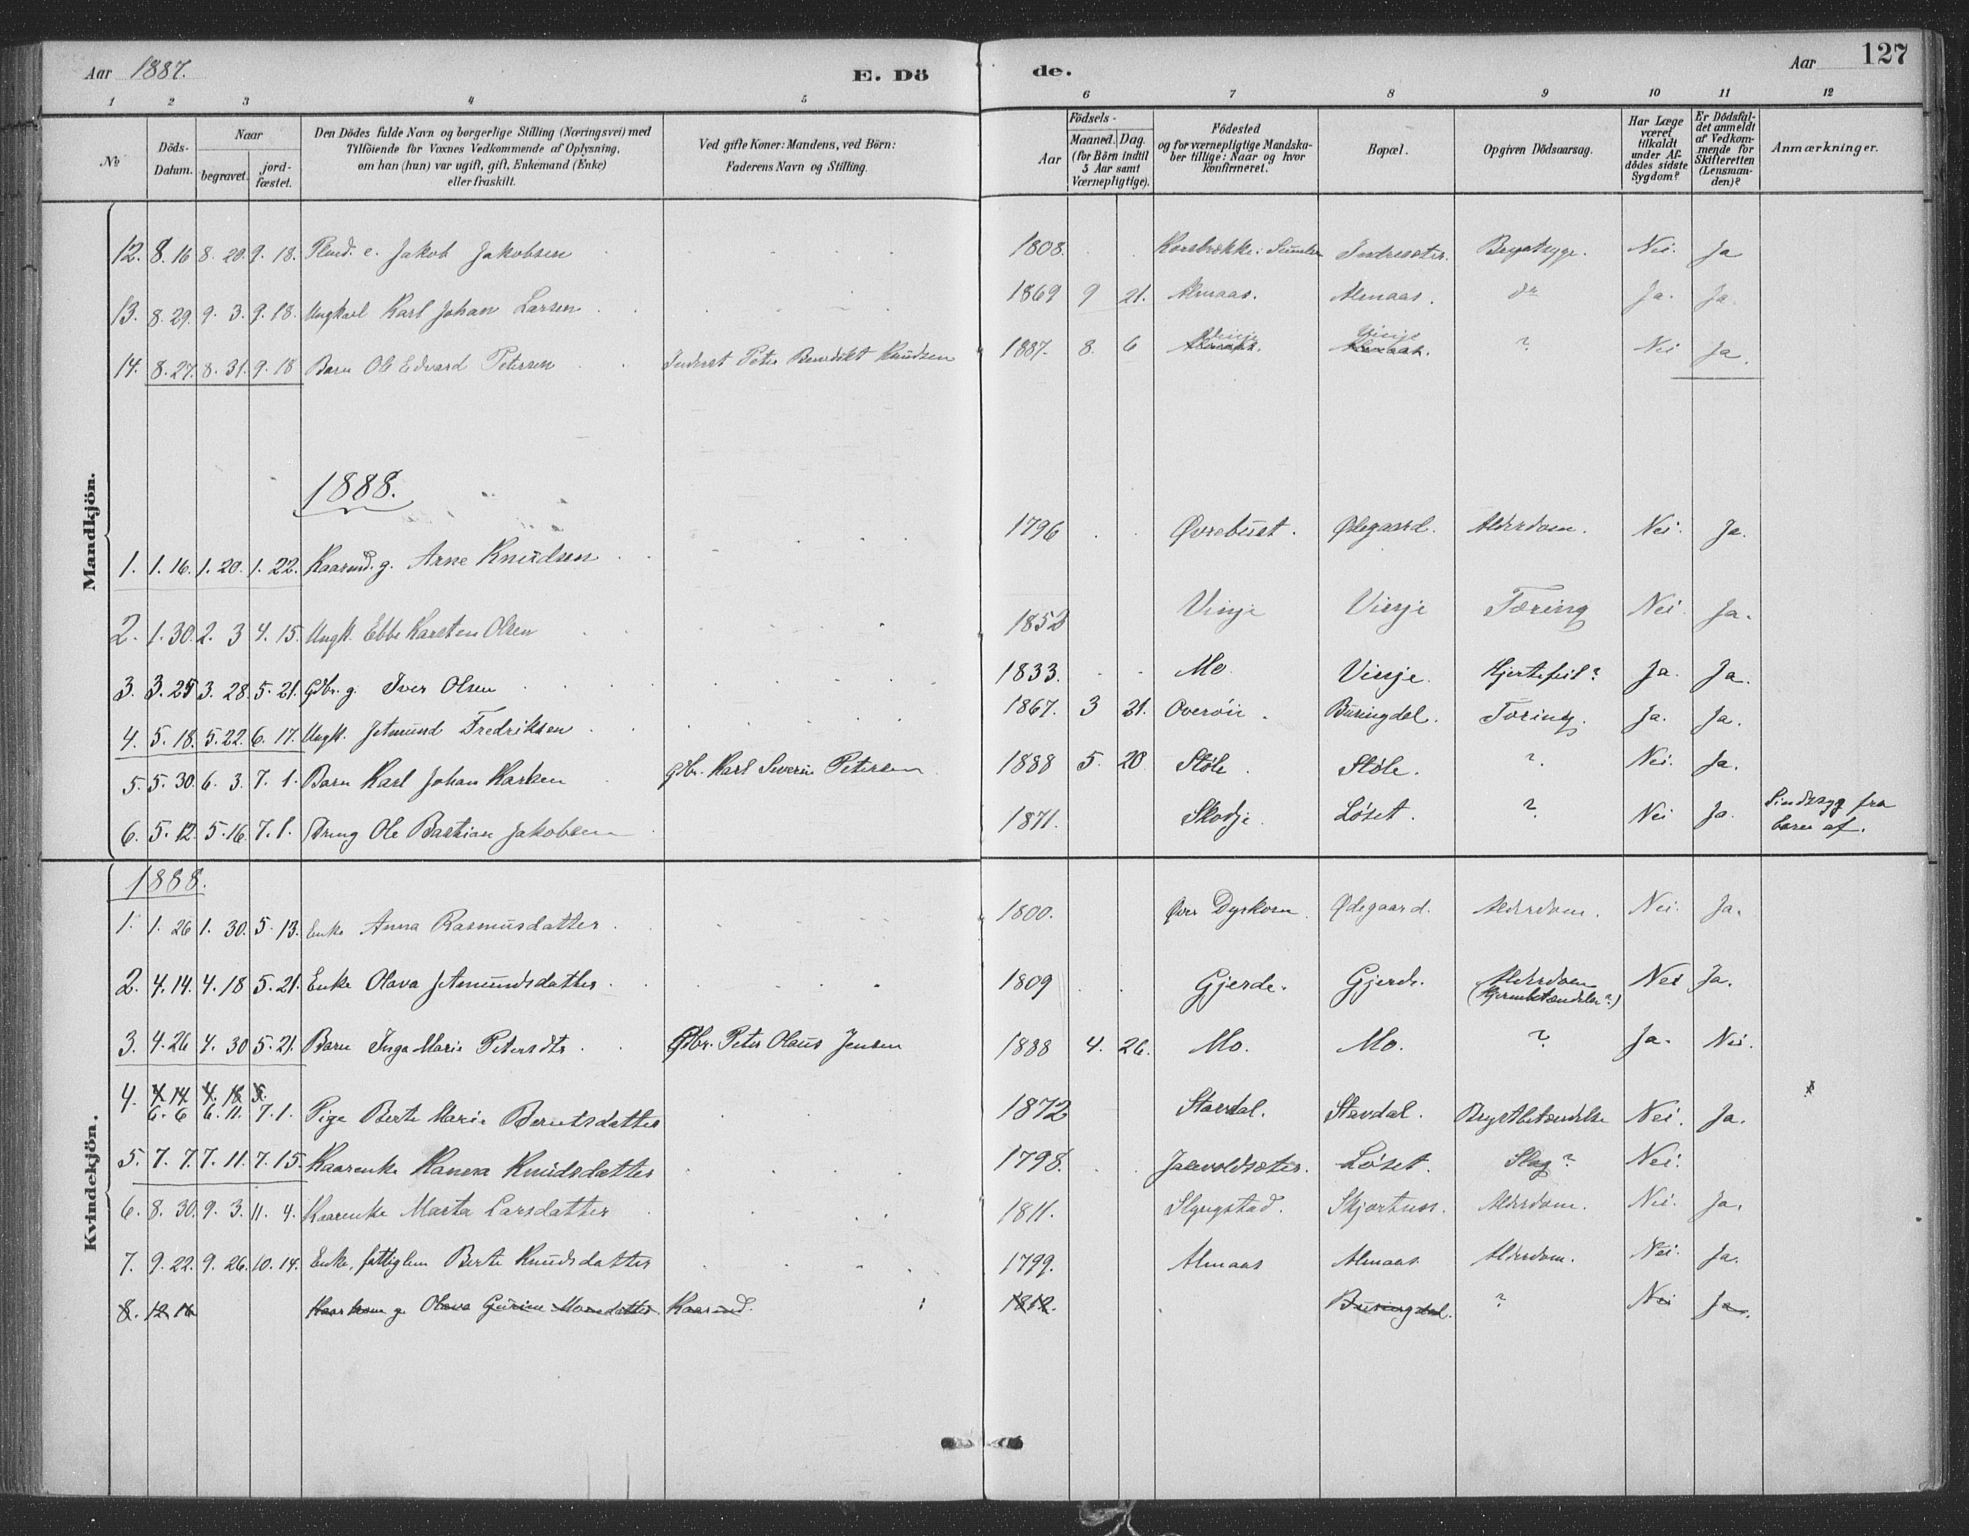 Aar 1887. E. Dö de. Aar 127
1 2 3 4 5 6 7 8 9 10 11 12
No
Döds-Datum.
Naar
begravet.
jord-fæstet.
Den Dödes fulde Navn og borgerlige Stilling (Næringsvei) med
Tilföiende for Voxnes Vedkommende af Oplysning,
om han (hun) var ugift, gift, Enkemand (Enke)
eller fraskilt.
Ved gifte Koner: Mandens, ved Börn:
Faderens Navn og Stilling.
Födsels-
Aar
Maaned. Dag.
(for Börn indtil
5 Aar samt
Værnepligtige).
Födested
og for værnepligtige Mandska-
ber tillige: Naar og hvor
konfirmeret.
Bopæl.
Opgiven Dödsaarsag.
Har Læge
været
tilkaldt
under Af-
dödes sidste
Sygdom?
Er Dödsfal-
det anmeldt
af Vedkom-
mende for
Skifteretten
(Lensman-
den)?
Anmærkninger.
Mandkjön.
12. 8. 16 8. 20. 9. 18. e. Jakob Jakobsen 1808. Nei. Ja
13. 8. 29. 9. 3. 9. 18. Ungkarl Karl Johan Larsen 1869 9 21. Almaas. Almaas. do Ja. Ja.
14. 8. 27. 8. 31. 9. 18 Barn Ole Edvard Petersen Inderst Peter Benedikt Knudsen 1887. 8. 6 Vinje Almaas. Vinje Almaas. ? Nei Ja.
1888.
1. 1. 16. 1. 20. 1. 22. Kaarmd. g. Arne Knudsen 1796 Øvrebust. Ødegaard. Alderdom. Nei. Ja.
2. 1. 30. 2. 3 4. 15. Ungk. Ebbe Karsten Olsen 1852 Vinje Vinje Tæring Nei. Ja.
3. 3. 25 3. 28. 5. 21. Gdbr. g. Iver Olsen 1833. Mo. Vinje. Hjertefeil? Ja. Ja.
4. 5. 18. 5. 22. 6. 17. Ungk. Jetmund Fredriksen 1867. 3 21. Overøie. Buringdal. Tæring. Ja. Ja.
5. 5. 30. 6. 3. 7. 1. Barn Karl Johan Karlsen Gdbr. Karl Severin Petersen 1888 5. 20 Støle. Støle. ? Nei. Ja.
6. 5. 12. 5. 16. 7. 1. Dreng Ole Bastian Jakobsen 1871. Skodje. Løset. ? Nei Ja. Sindssyg fra
barn af.
Kvindekjön.
1888.
1. 1. 26 1. 30. 5. 13. Enke Anna Rasmusdatter. 1800. Øvre Dyrkorn. Ødegaard. Alderdom. Nei. Ja.
2. 4. 14. 4. 18 5. 21. Enke Olava Jetmundsdatter. 1809 Gjerde. Gjerde. Alderdom Nei Ja.
3. 4. 26 4. 30 5. 21. Barn Inga Marie Petersdtr. Gdbr. Peter Olaus Jensen 1888 4. 26. Mo. Mo. ? Ja. Nei.
4. 4. 14 4. 18 5.
6. 6 6. 11. 7. 1. Pige Berte Marie Berntsdatter 1872 Stavdal. Stavdal. Brystbetændelse Nei. Ja.
5. 7. 7. 7. 11. 7. 15. Kaarenke Hanna Knudsdatter 1798. Løset. Slag? Nei.
6. 8. 30. 9. 3. 11. 4. Kaarenke Marta Larsdatter 1811. Slyngstad. Alderdom. Nei. Ja.
7. 9. 22. 9. 26. 10. 14. Enke, fattiglem Berte Knudsdatter 1799. Almaas Almaas. Alderdom. Nei. Ja.
8. 12 16 Kaarkone g. Olava Gurine Monsdatter Kaarmd. 1812. Buringdal. ? Nei Ja.